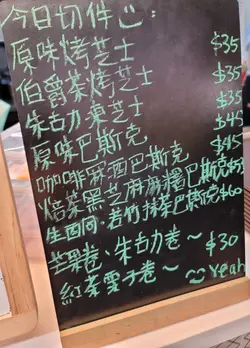 今日切件
原味烤芝士 $35
伯爵茶烤芝士 $35
朱古力烤芝士 $35
原味巴斯克 $45
咖啡 酒巴斯克 $45
焙茶黑芝麻麻糬巴斯克
若竹抹茶巴斯克 $60
芒果卷、朱古力卷~ $30
紅茶栗子卷~ Yeah